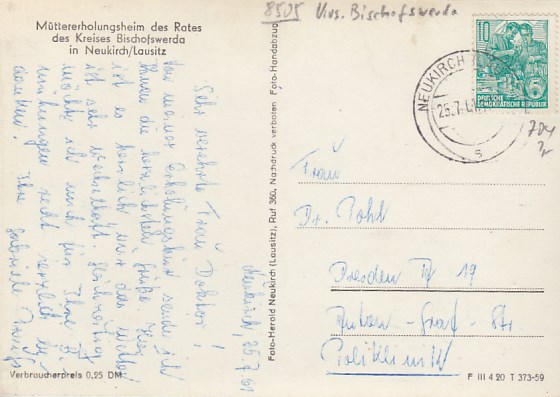 Müttererholungsheim des Rates
des Kreises Bischofswerda
in Neukirch/Lausitz
8505 Krs. Bischofswerda
10
DEUTSCHE
DEMOKRATISCHE REPUBLIK
5
NEUKIRCH
25.7.61
s
Neukirch, 25.7.61
Sehr verehrte Frau Doktor!
Von meiner Erholungskur sende ich
Ihnen die herzlichsten Grüße. Hier
ist es herrlich, nur das Wetter
ist sehr wechselhaft. Gleichzeitig
möchte ich mich für Ihre
mühungen recht herzlich be-
danken. Ihre
Foto-Herold Neukirch (Lausitz), Ruf 360, Nachdruck verboten Foto-Handabzug
Frau
Dr. Pohl
Dresden A 19
Anton-Graf-Str.
Poliklinik
Verbraucherpreis 0,25 DM
F III 4 20 T 373-59